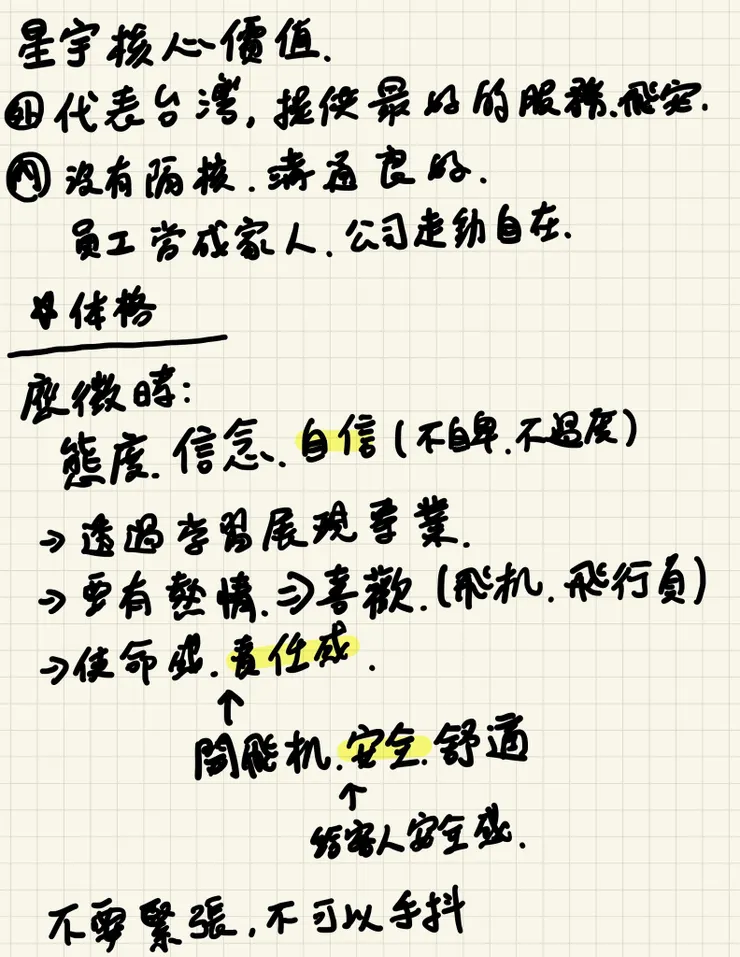 星宇核心價值.
㊕外 代表台灣, 提供最好的服務.飛安.
內 沒有隔核.溝通良好.
員工當成家人.公司走動自在.
*体格
應徵時:
態度.信念.自信(不自卑.不過度)
→透過學習展現專業.
→要有熱情.⇒喜歡.(飛机.飛行員)
→使命感.責任感.
↑
開飛机.安全.舒適
↑
給客人安全感.
不要緊張,不可以手抖